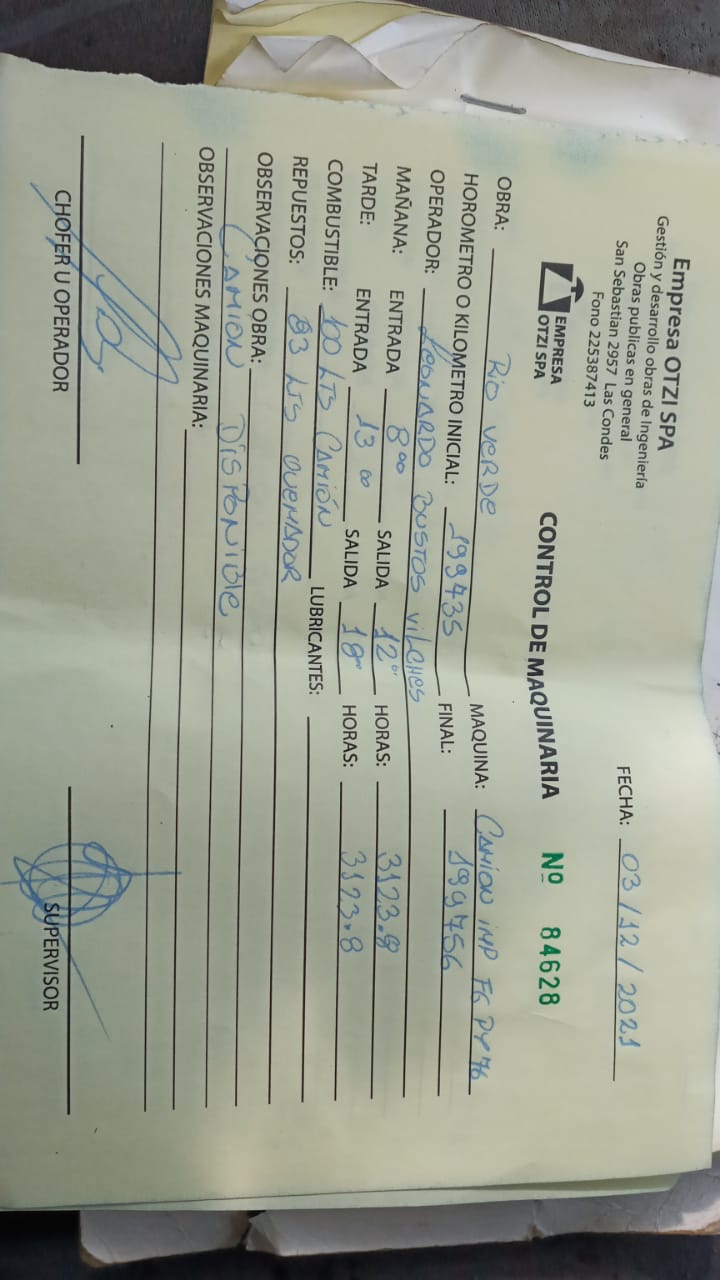 Empresa OTZI SPA
Gestión y desarrollo obras de Ingeniería
Obras publicas en general
San Sebastian 2957 Las Condes
Fono 225387413
FECHA: 03/12/2021
EMPRESA
OTZI SPA
CONTROL DE MAQUINARIA Nº 84628
OBRA: Rio VERDE MAQUINA: CAMION iMP FG PY 76
HOROMETRO O KILOMETRO INICIAL: 199735 FINAL: 199756
OPERADOR: LEONARDO BUSTOS ViLCHES
MAÑANA: ENTRADA 8°° SALIDA 12°° HORAS: 3123.8
TARDE: ENTRADA 13°° SALIDA 18°° HORAS: 3123.8
COMBUSTIBLE: 100 LTS CAMIÓN LUBRICANTES:
REPUESTOS: 83 LTS QUEMADOR
OBSERVACIONES OBRA:
CAMION DISPONIBLE
OBSERVACIONES MAQUINARIA:
CHOFER U OPERADOR SUPERVISOR